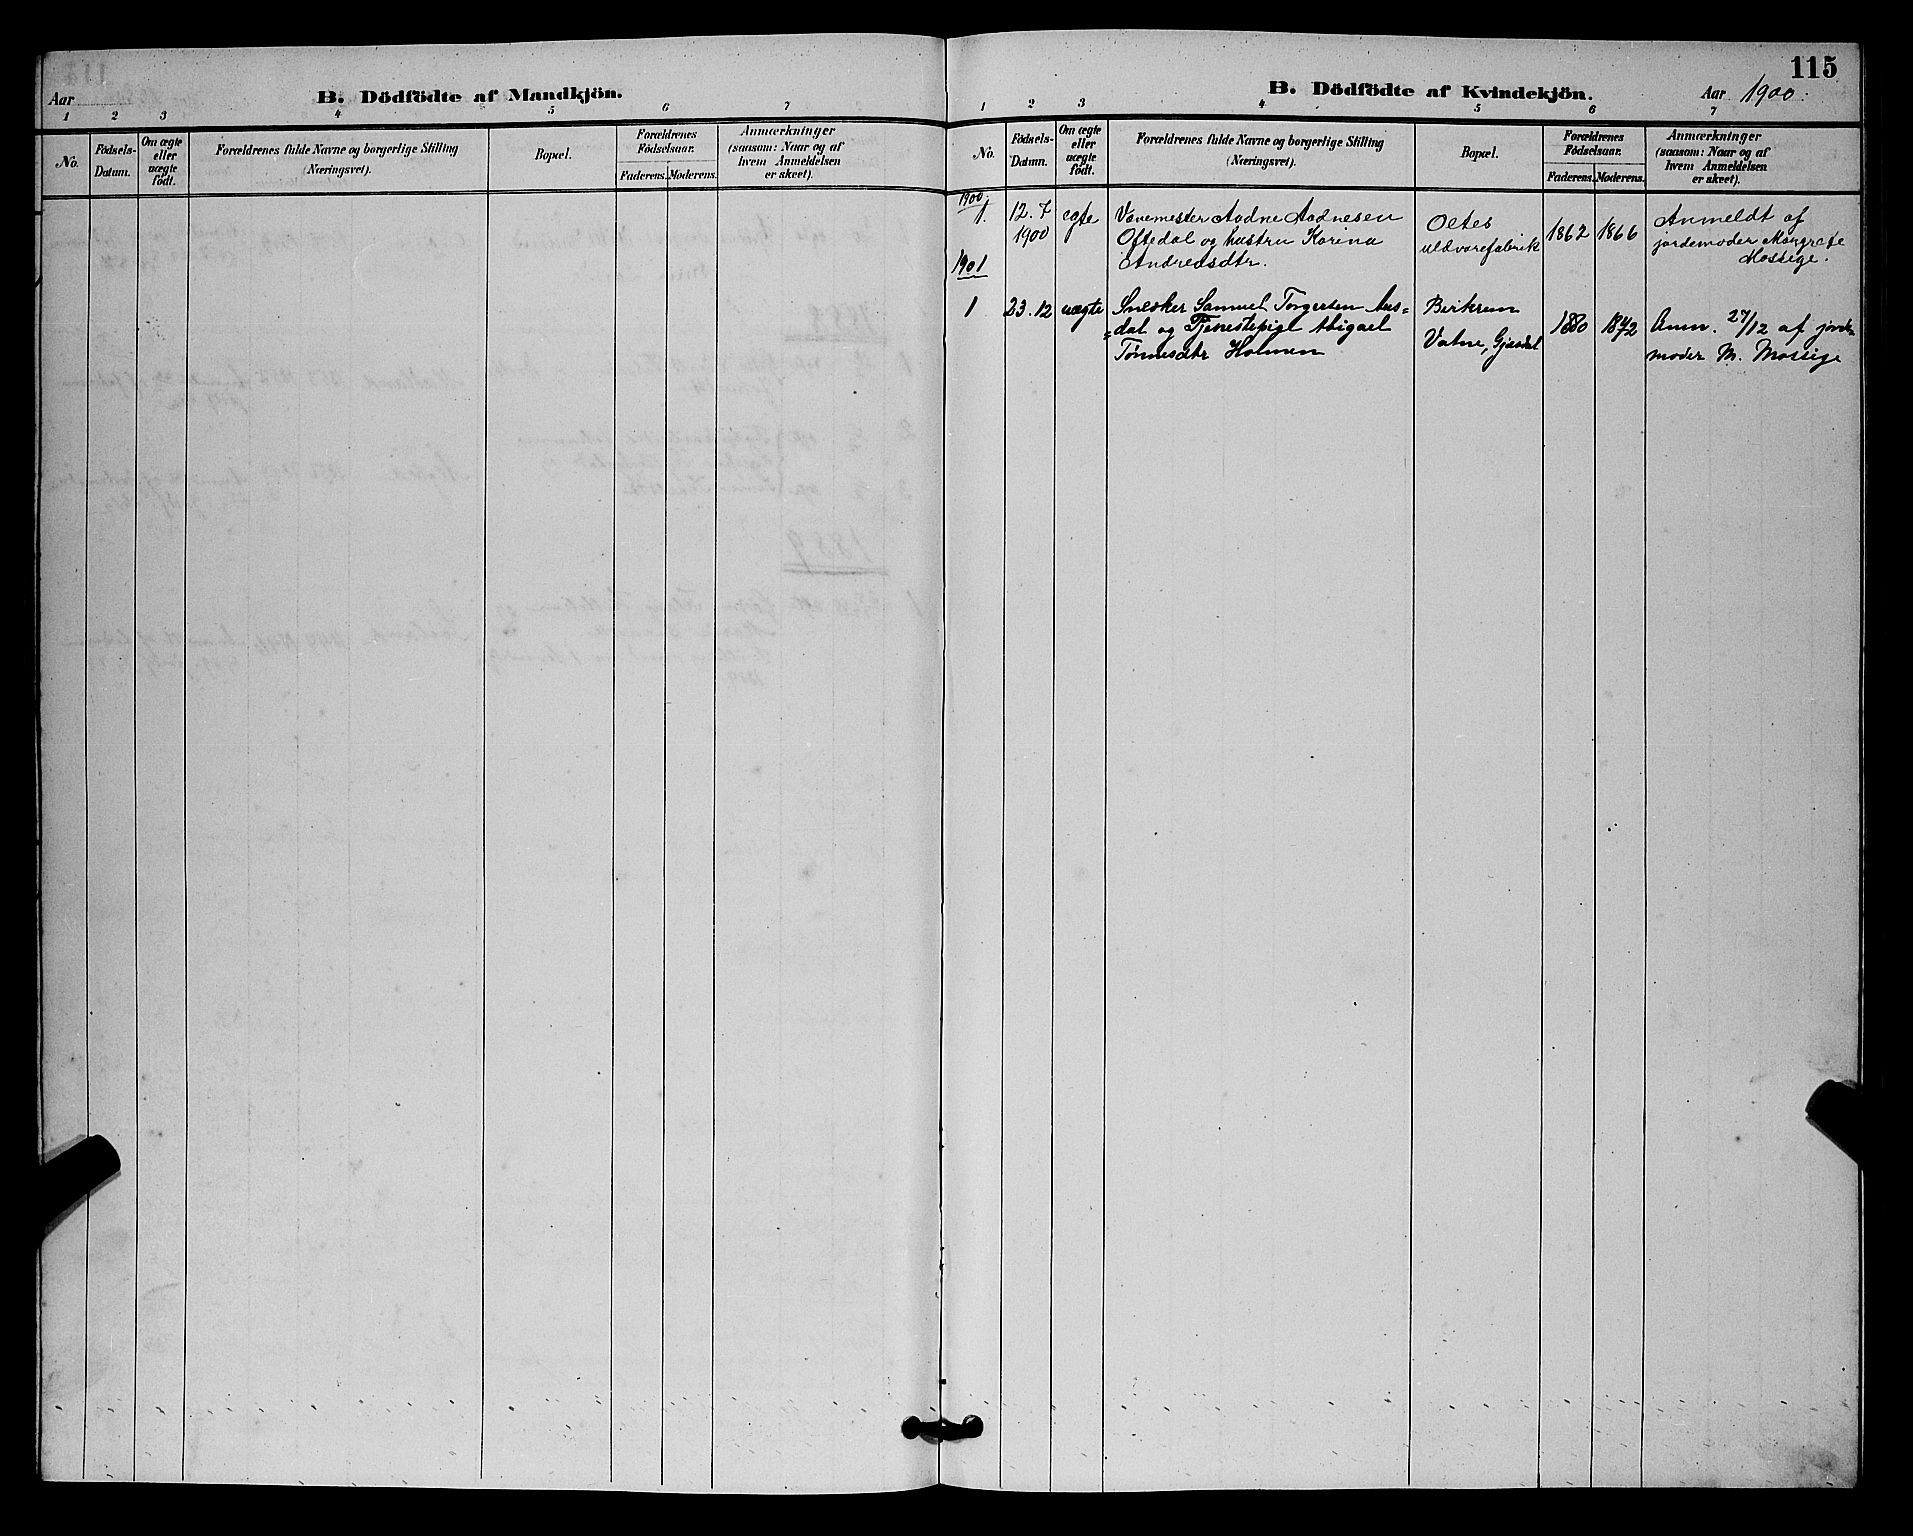 Aar
B. Dödfödte af Mandkjön.
1 2 3 4 5 6 7
No.
Födsels-
Datum.
Om ægte
eller
uægte
födt.
Forældrenes fulde Navne og borgerlige Stilling
(Næringsvei).
Bopæl.
Forældrenes
Födselsaar.
Faderens. Moderens.
Anmærkninger
(saasom: Naar og af
hvem Anmeldelsen
er skeet).
115
B. Dödfödte af Kvindekjön.
Aar 1900.
1 2 3 4 5 6 7
No.
Födsels-
Datum.
Om ægte
eller
uægte
födt.
Forældrenes fulde Navne og borgerlige Stilling
(Næringsvei).
Bopæl.
Forældrenes
Födselsaar.
Faderens. Moderens.
Anmærkninger
(saasom: Naar og af
hvem Anmeldelsen
er skeet).
1900.
1. 12. 7 ægte Vævemester Aadne Aadnesen Oltes 1862 1866 Anmeldt af
1900 Oftedal og hustru Karina uldvarefabrik jordemoder Margrete
Andreasdtr. Mossige.
1901
1 23.12 uægte Snedker Samuel Torgersen Aus= Birkrem 1880 1872 Anm. 27/12 af jorde-
=dal og Tjenestepige Abigael Vatne, Gjesdal moder M. Mossige
Tønnesdtr Holmen